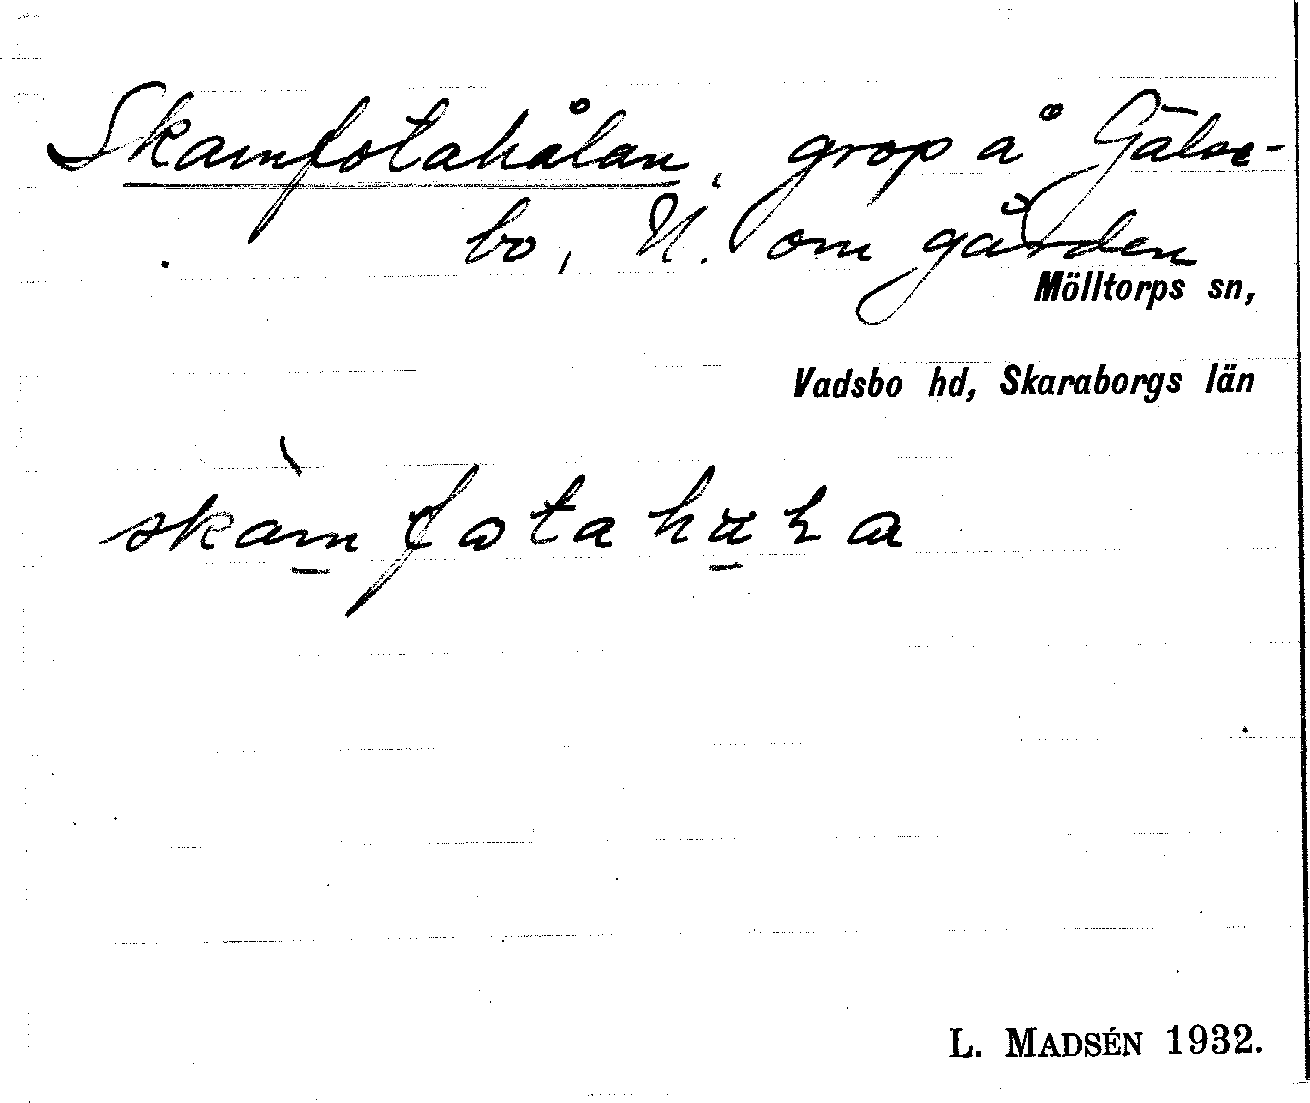 Skamfotahålan, grop å Gälse-
bo, N. om gården
Mölltorps sn,
Vadsbo hd, Skaraborgs län
L. MADSÉN 1932.